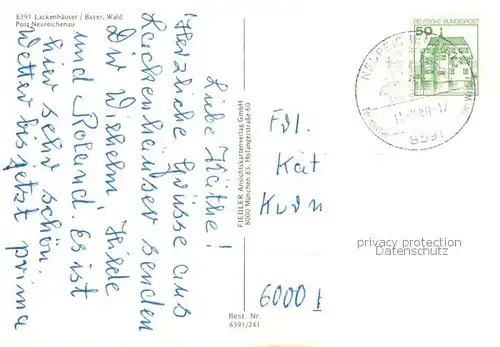 8391 Lackenhäuser / Bayer. Wald
Post Neureichenau
Liebe Käthe!
Herzliche Grüsse aus
Lackenhäuser senden
Dir Wilhelm, Hilde
und Roland. Es ist
hier sehr schön.
Wetter bis jetzt prima
FIEDLER Ansichtskartenverlag GmbH
8000 München 83, Hofangerstraße 60
Best. Nr.
8391/241
DEUTSCHE BUNDESPOST
50
8391
Frl.
Kät
Kurm
6000
privacy protection
Datenschutz